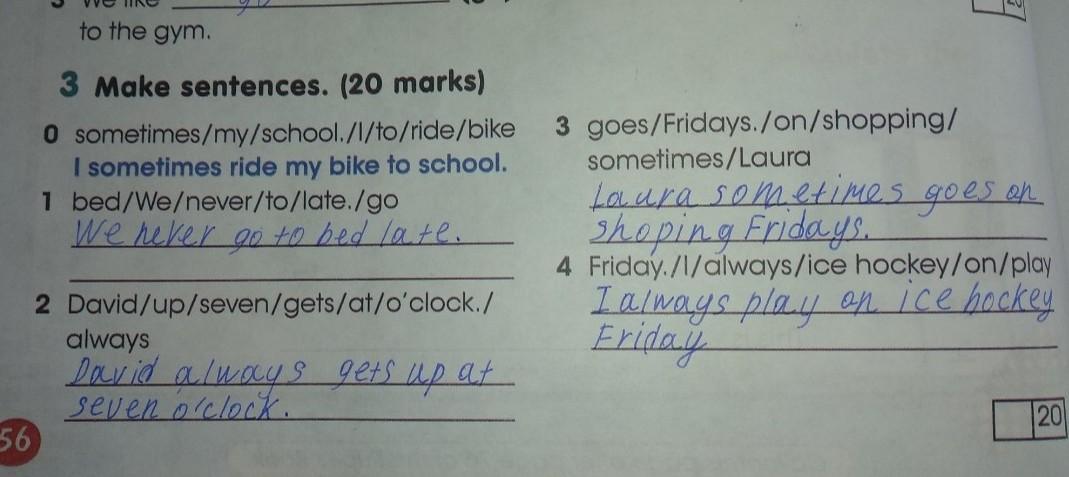 3 We like
to the gym.
3 Make sentences. (20 marks)
0 sometimes/my/school./I/to/ride/bike
I sometimes ride my bike to school.
1 bed/We/never/to/late./go
We never go to bed late.
2 David/up/seven/gets/at/o'clock./
always
David always gets up at
seven o'clock.
3 goes/Fridays./on/shopping/
sometimes/Laura
Laura sometimes goes on
shoping Fridays.
4 Friday./I/always/ice hockey/on/play
I always play on ice hockey
Friday
56
20